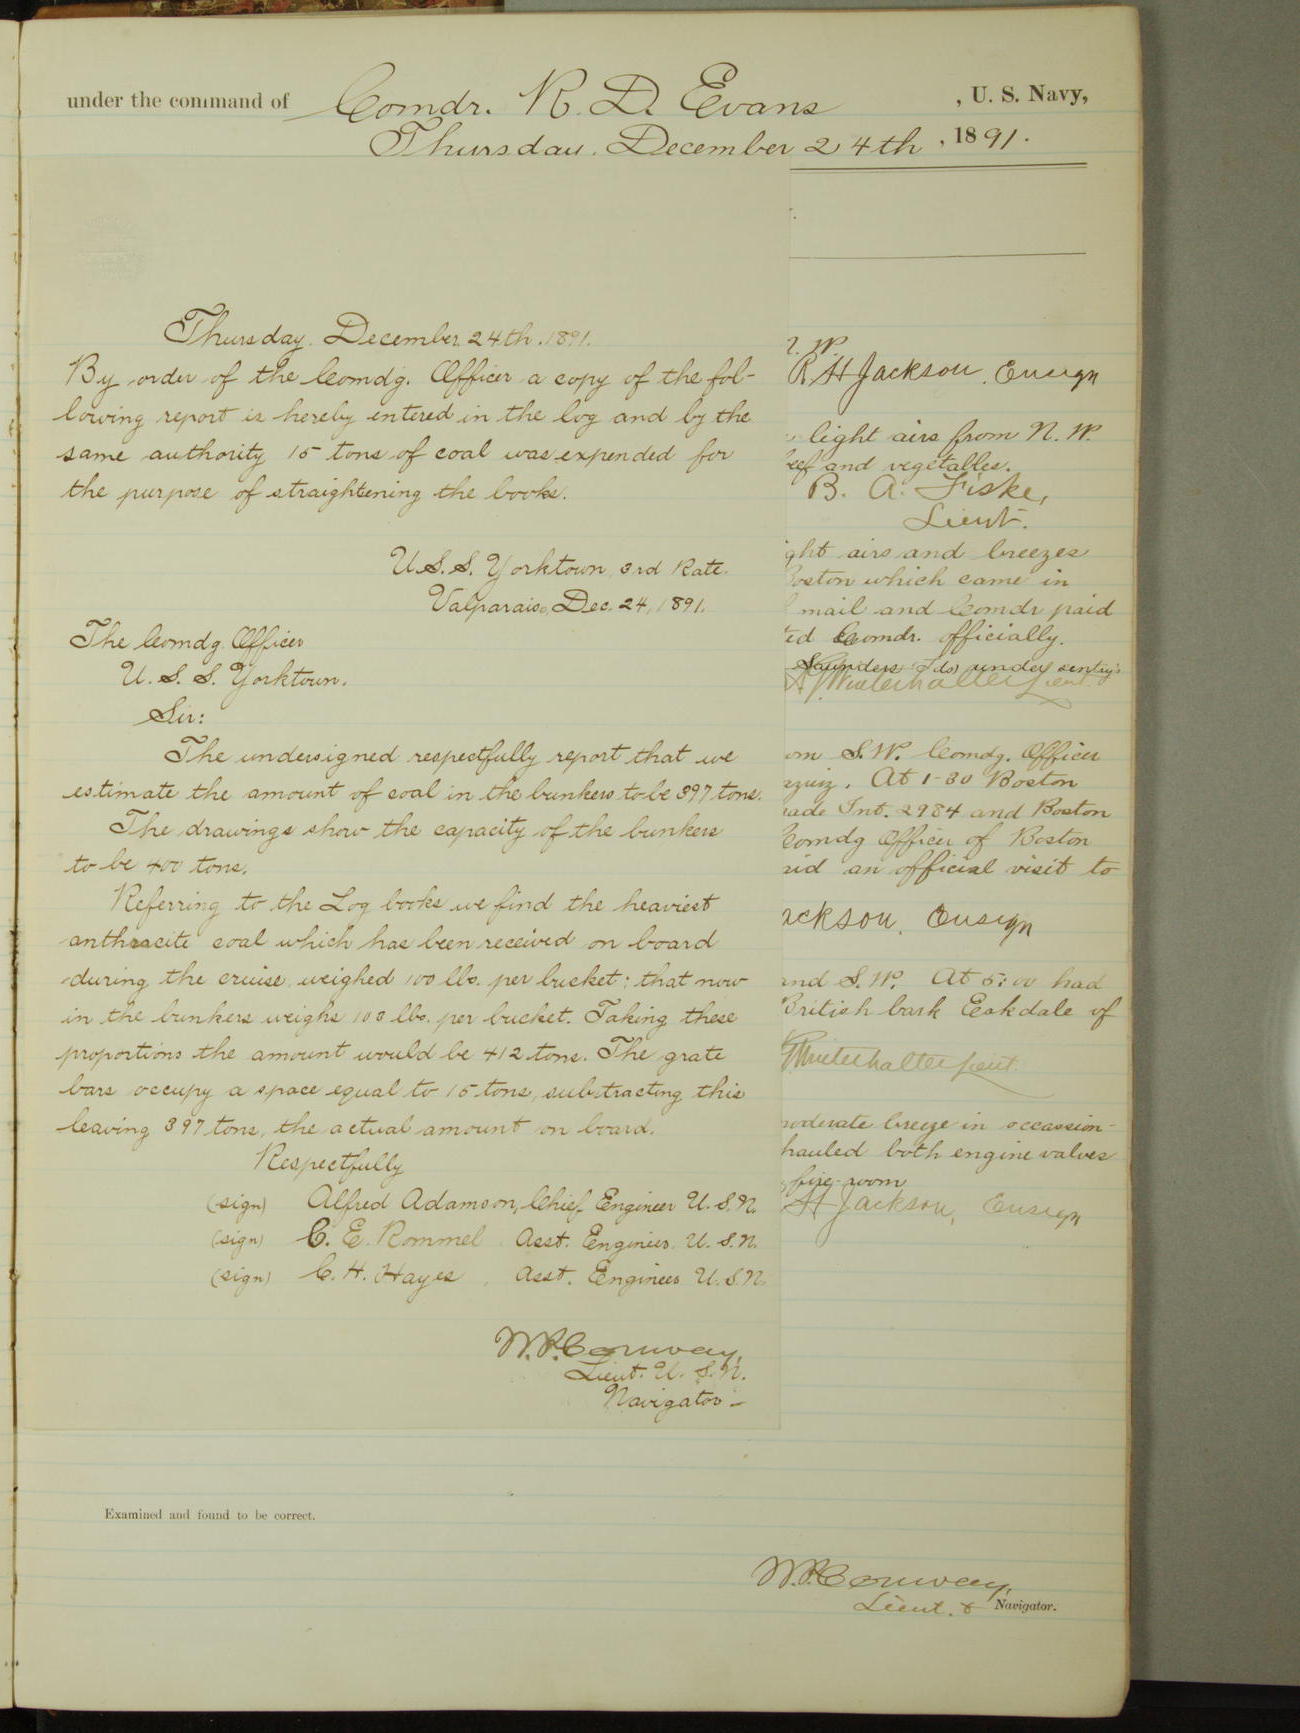 under the command of Comdr. R. D. Evans , U. S. Navy,
Thursday. December 24th , 1891.
Thursday. December 24th. 1891.
By order of the Comdg. Officer a copy of the fol-
lowing report is hereby entered in the log and by the
same authority 15 tons of coal was expended for
the purpose of straightening the books.
U.S.S. Yorktown, 3rd Rate.
Valparaiso, Dec. 24, 1891.
The Comdg. Officer
U. S. S. Yorktown.
Sir:
The undersigned respectfully report that we
estimate the amount of coal in the bunkers to be 397 tons.
The drawings show the capacity of the bunkers
to be 400 tons.
Referring to the Log books we find the heaviest
anthracite coal which has been received on board
during the cruise, weighed 100 lbs. per bucket; that now
in the bunkers weighs 103 lbs. per bucket. Taking these
proportions the amount would be 412 tons. The grate
bars occupy a space equal to 15 tons, substracting this
leaving 397 tons, the actual amount on board.
Respectfully
(sign) Alfred Adamson, Chief Engineer U. S. N.
(sign) C. E. Rommel Asst. Engineer. U. S. N.
(sign) C. H. Hayes, Asst. Engineer U. S. N.
W. P. Conway,
Lieut. U. S. N.
Navigator
N. W.
R H Jackson, Ensign
light airs from N. W.
eef and vegetables.
B. A. Fiske,
Lieut.
ight airs and breezes
Boston which came in
mail and Comdr paid
ted Comdr. officially.
Saunders (Lds) under sentry's
Winterhalter Lieut.
om S. W. Comdg. Officer
At 1-30 Boston
ade Int. 2984 and Boston
Comdg Officer of Boston
aid an official visit to
ackson, Ensign
and S. W. At 5:00 had
British bark Eskdale of
Winterhalter Lieut.
moderate breeze in occassion-
hauled both engine valves
fire-room
H Jackson, Ensign
Examined and found to be correct.
W. P. Conway,
Lieut. & Navigator.